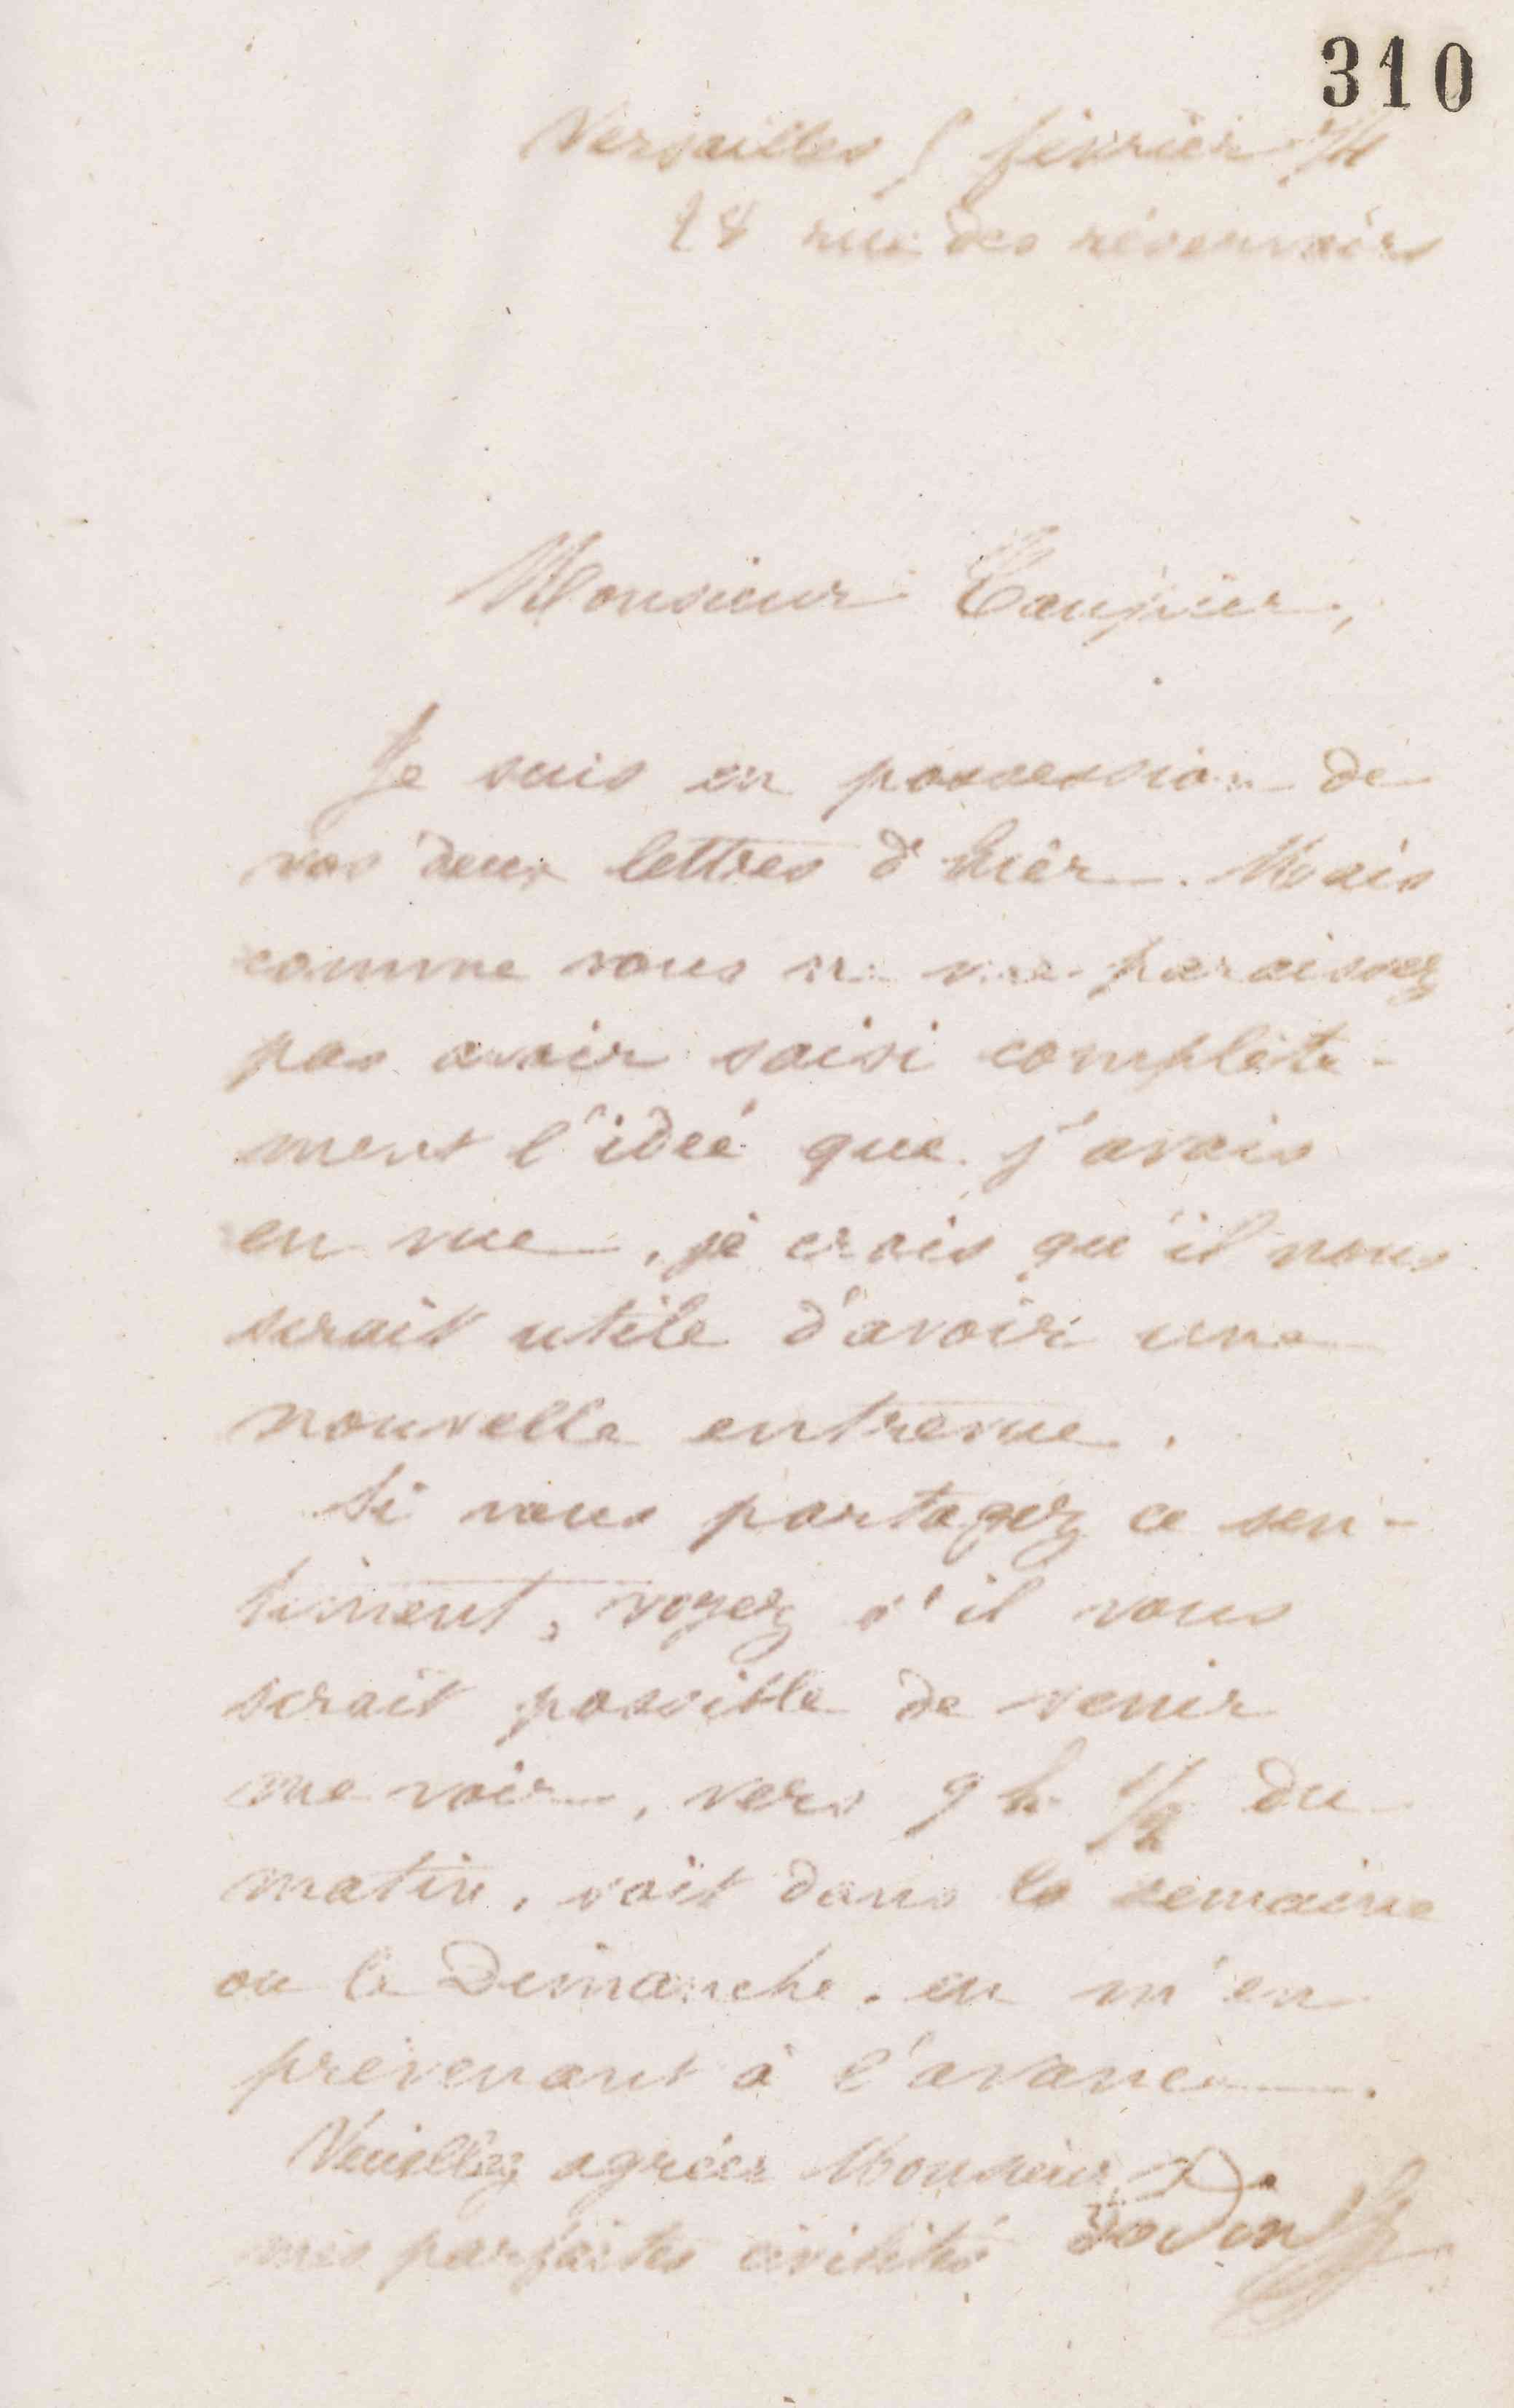 310
Versailles 5 février 74
28 rue des réservoirs
Monsieur Taupier,
Je suis en possession de
vos deux lettres d'hier. Mais
comme vous ne me paraissez
pas avoir saisi complète-
ment l'idée que j'avais
en vue, je crois qu'il nous
serait utile d'avoir une
nouvelle entrevue.
Si vous partagez ce sen-
timent, voyez s'il vous
serait possible de venir
me voir, vers 9 h 1/2 du
matin, soit dans la semaine
ou le Dimanche. en m'en
prévenant à l'avance.
Veuillez agréer Monsieur
mes parfaites civilités Godin